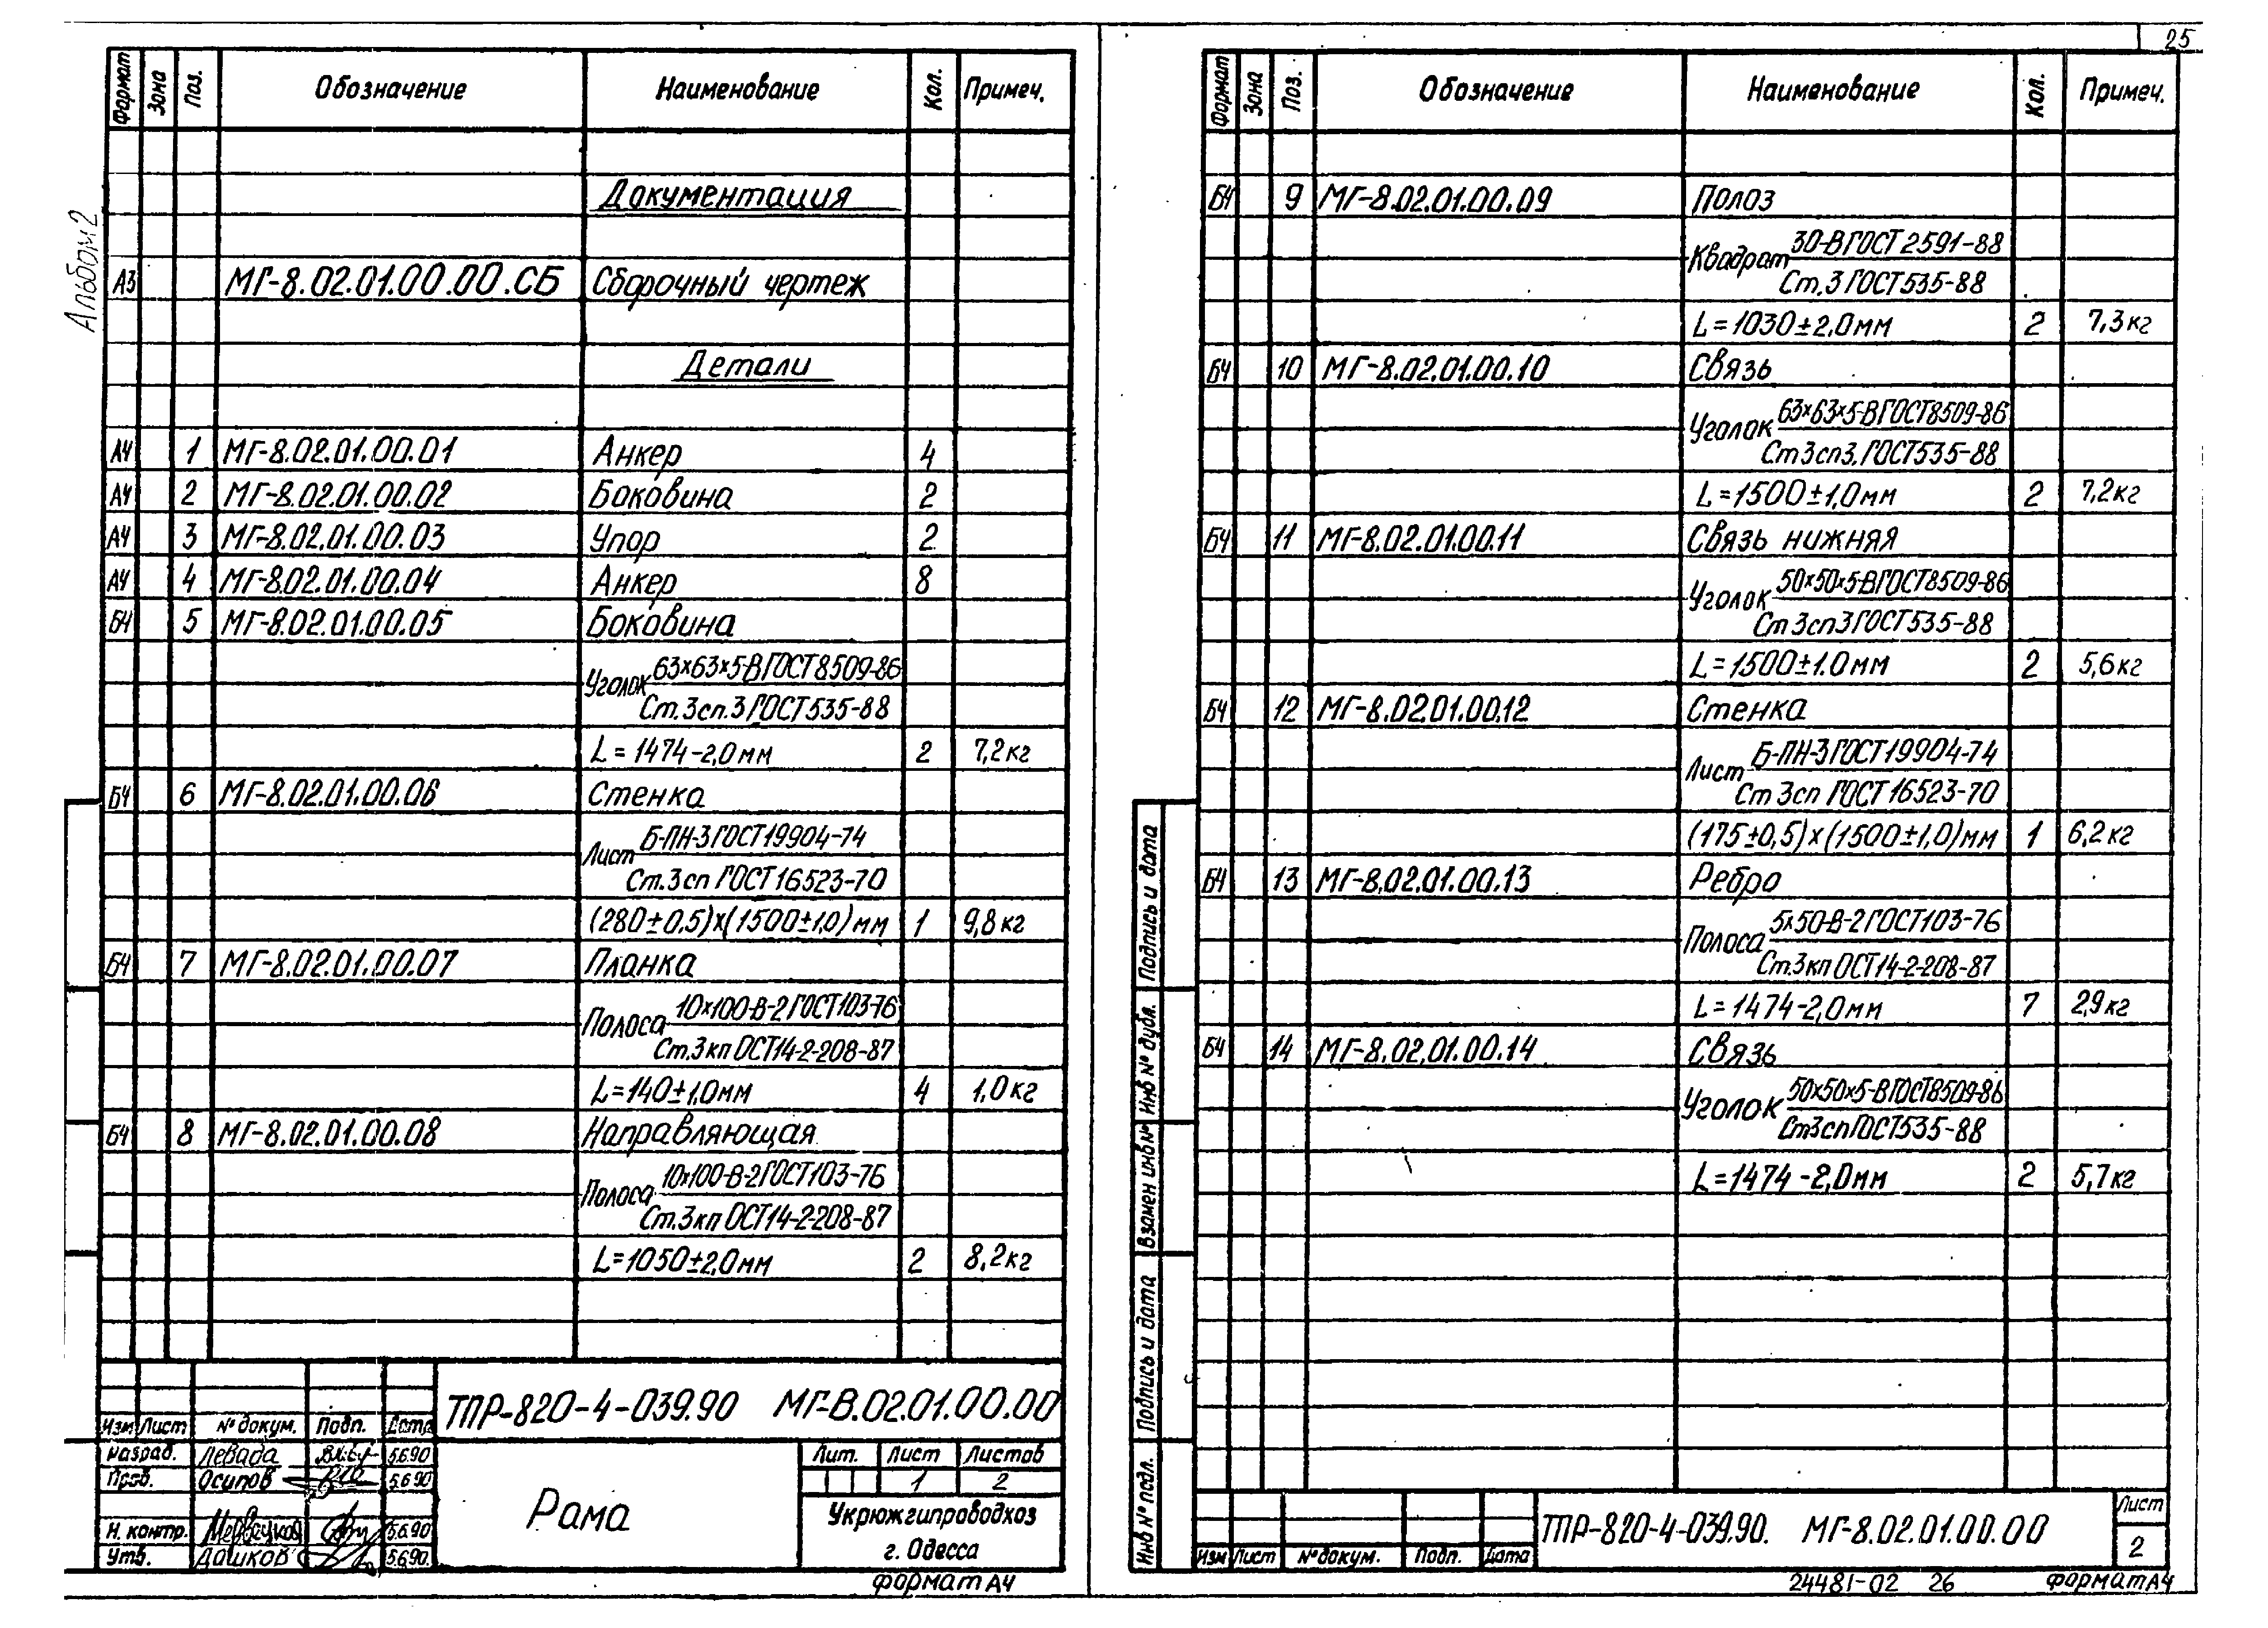 25
Альбом 2
Формат Зона Поз. Обозначение Наименование Кол. Примеч.
Документация
А3 МГ-8.02.01.00.00.СБ Сборочный чертеж
Детали
А4 1 МГ-8.02.01.00.01 Анкер 4
А4 2 МГ-8.02.01.00.02 Боковина 2
А4 3 МГ-8.02.01.00.03 Упор 2
А4 4 МГ-8.02.01.00.04 Анкер 8
БЧ 5 МГ-8.02.01.00.05 Боковина
Уголок 63х63х5-В ГОСТ 8509-86
Ст.3сп.3 ГОСТ 535-88
L = 1474-2,0мм 2 7,2кг
БЧ 6 МГ-8.02.01.00.06 Стенка
Лист Б-ПН-3 ГОСТ 19904-74
Ст.3сп ГОСТ 16523-70
(280±0,5)х(1500±1,0)мм 1 9,8кг
БЧ 7 МГ-8.02.01.00.07 Планка
Полоса 10х100-В-2 ГОСТ 103-76
Ст.3кп ОСТ14-2-208-87
L=140±1,0мм 4 1,0кг
БЧ 8 МГ-8.02.01.00.08 Направляющая
Полоса 10х100-В-2 ГОСТ 103-76
Ст.3кп ОСТ14-2-208-87
L=1050±2,0мм 2 8,2кг
ТПР-820-4-039.90 МГ-8.02.01.00.00
Изм Лист № докум. Подп. Дата
Разраб. Левада 5.6.90
Пров. Осипов 5.6.90
Н. контр. 5.6.90
Утв. Дашков 5.6.90.
Рама
Лит. Лист Листов
1 2
Укрюжгипроводхоз
г. Одесса
Формат А4
Формат Зона Поз. Обозначение Наименование Кол. Примеч.
БЧ 9 МГ-8.02.01.00.09 Полоз
Квадрат 30-В ГОСТ 2591-88
Ст.3 ГОСТ 535-88
L=1030±2,0мм 2 7,3кг
БЧ 10 МГ-8.02.01.00.10 Связь
Уголок 63х63х5-В ГОСТ 8509-86
Ст3сп3.ГОСТ 535-88
L=1500±1,0мм 2 7,2кг
БЧ 11 МГ-8.02.01.00.11 Связь нижняя
Уголок 50х50х5-В ГОСТ 8509-86
Ст3сп3 ГОСТ 535-88
L=1500±1.0мм 2 5,6кг
БЧ 12 МГ-8.02.01.00.12 Стенка
Лист Б-ПН-3 ГОСТ 19904-74
Ст 3сп ГОСТ 16523-70
(175±0,5)х(1500±1,0)мм 1 6,2кг
БЧ 13 МГ-8.02.01.00.13 Ребро
Полоса 5х50-В-2 ГОСТ 103-76
Ст.3кп ОСТ14-2-208-87
L=1474-2,0мм 7 2,9кг
БЧ 14 МГ-8.02.01.00.14 Связь
Уголок 50х50х5-В ГОСТ 8509-86
Ст3сп ГОСТ 535-88
L=1474-2,0мм 2 5,7кг
Подпись и дата
Инв № дубл.
Взамен инв №
Подпись и дата
Инв № подл.
Изм Лист № докум. Подп. Дата
ТПР-820-4-039.90. МГ-8.02.01.00.00
Лист
2
24481-02 26 Формат А4